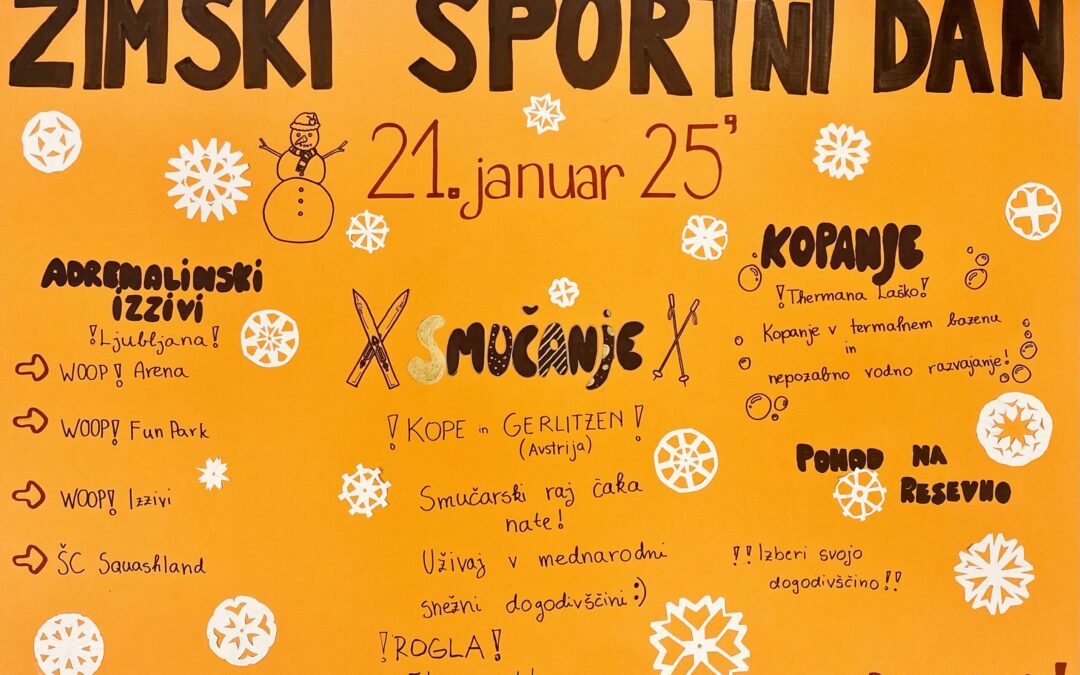 ZIMSKI ŠPORTNI DAN
21. januar 25'
ADRENALINSKI
IZZIVI
!Ljubljana!
WOOP! Arena
WOOP! Fun Park
WOOP! Izzivi
ŠC Squashland
SMUČANJE
! KOPE in GERLITZEN !
(Avstrija)
Smučarski raj čaka
nate!
Uživaj v mednarodni
snežni dogodivščini :)
!ROGLA!
KOPANJE
!Thermana Laško!
Kopanje v termalnem bazenu
in
nepozabno vodno razvajanje!
POHOD NA
RESEVNO
!!Izberi svojo
dogodivščino!!